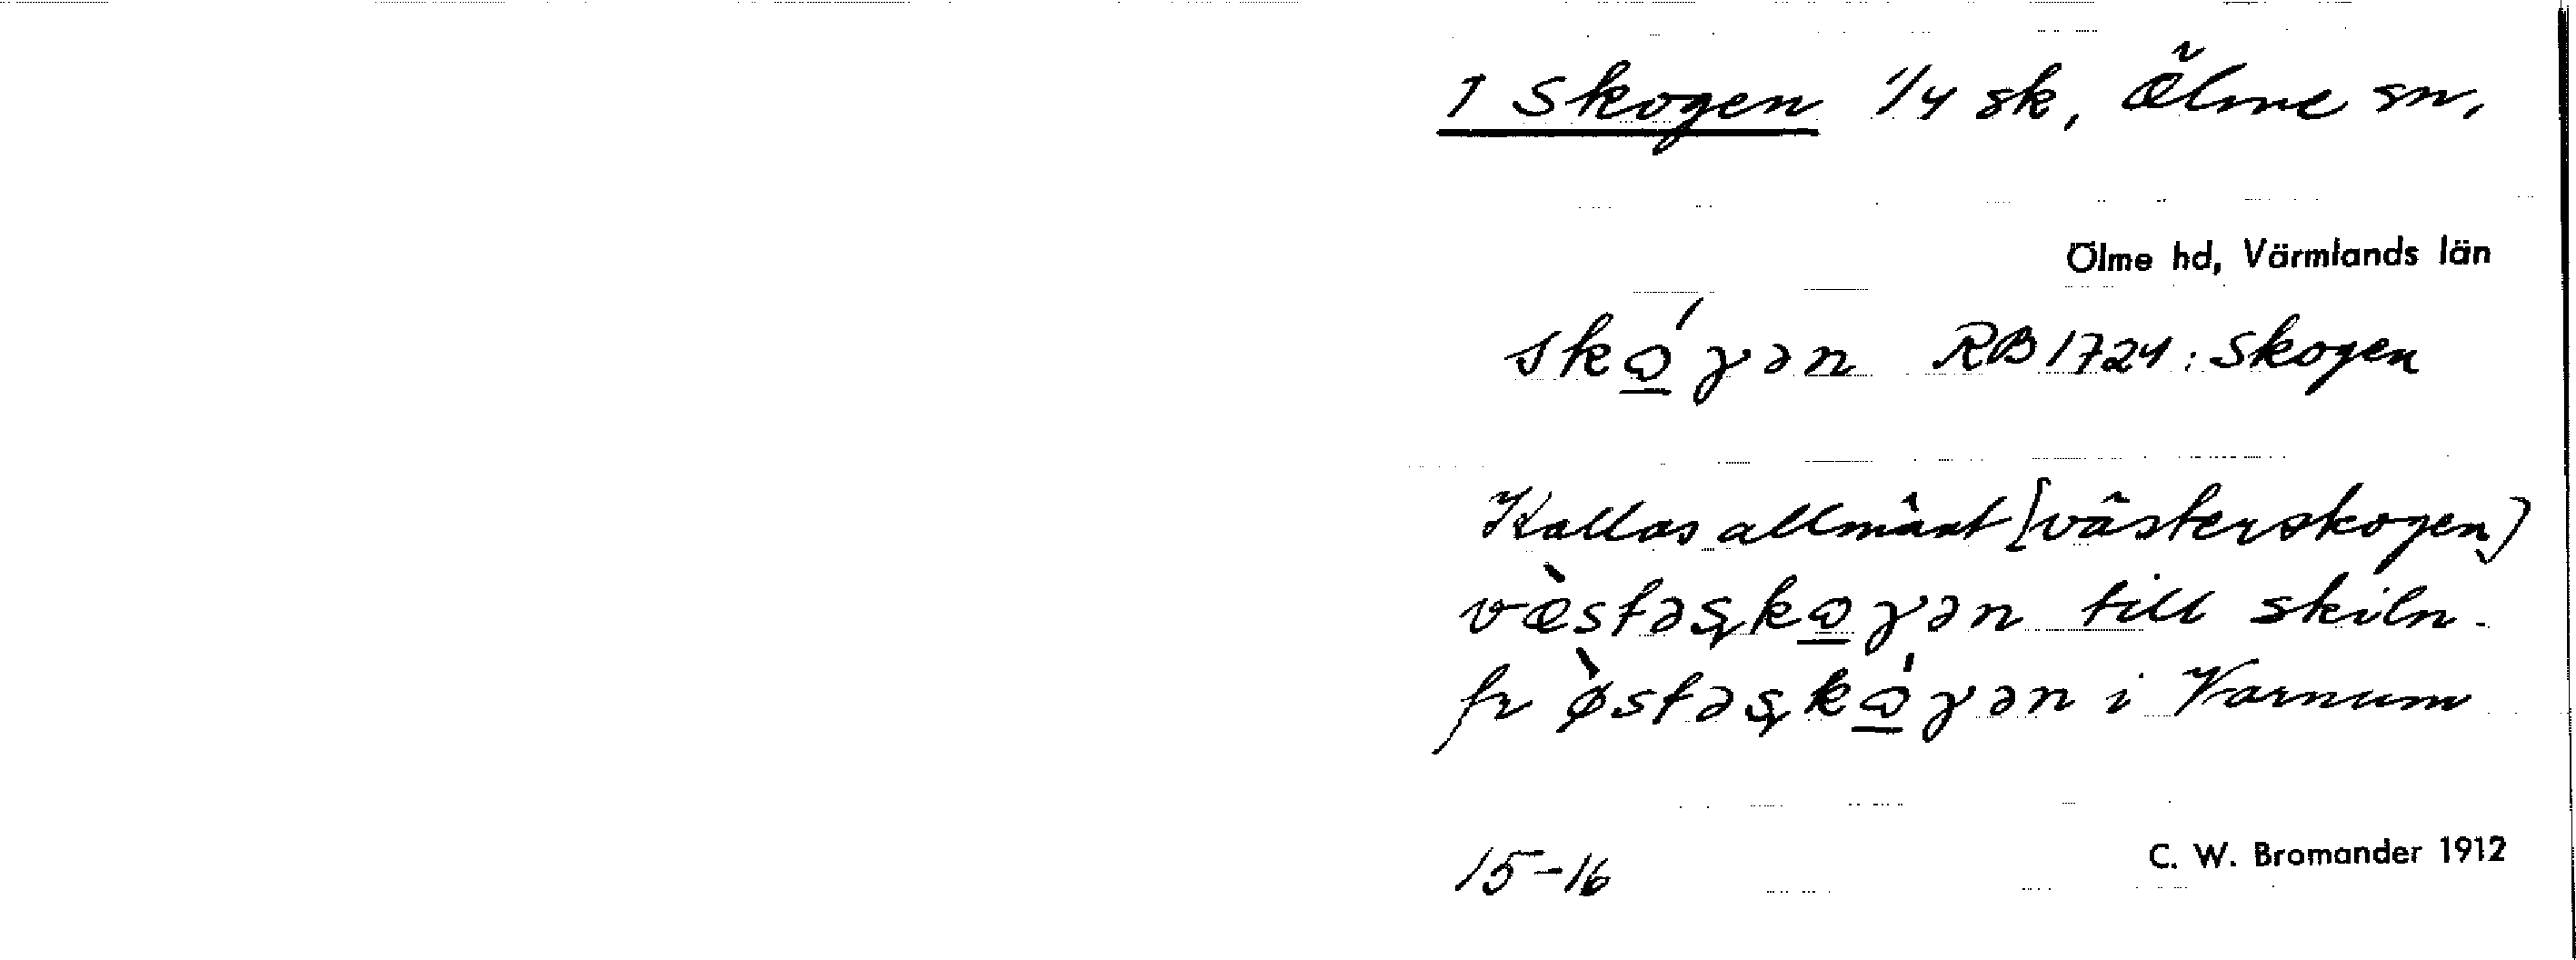 1 Skogen 1/4 sk, Ölme sn,
Ölme hd, Värmlands län
skώ̲γən RB 1724: Skogen
Kallas allmänt (västerskogen)
vὲstəʂkω̲γən till skiln.
fr ø̀stəʂkώ̲γən i Varnum
15-16
C. W. Bromander 1912